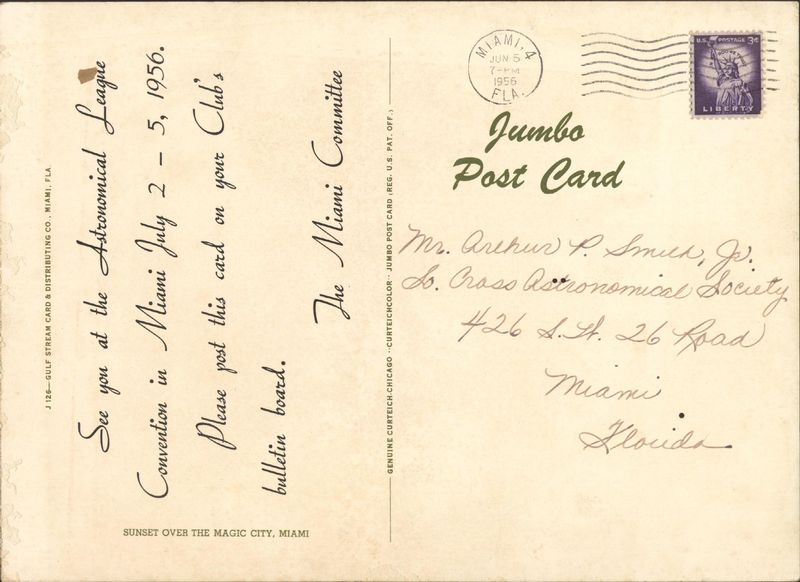 See you at the Astronomical League
Convention in Miami July 2 – 5, 1956.
Please post this card on your Club's
bulletin board.
The Miami Committee
J 126—GULF STREAM CARD & DISTRIBUTING CO., MIAMI, FLA.
SUNSET OVER THE MAGIC CITY, MIAMI
GENUINE CURTEICH-CHICAGO "CURTEICHCOLOR" JUMBO POST CARD (REG. U.S. PAT. OFF.)
MIAMI, 4
JUN 5
7-PM
1956
FLA.
U.S. POSTAGE 3¢
LIBERTY
Jumbo
Post Card
Mr. Arthur P. Smith, Jr.
So. Cross Astronomical Society
426 S.W. 26 Road
Miami
Florida